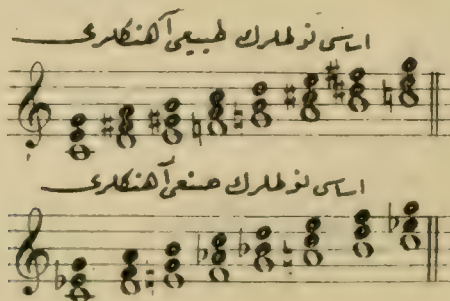 اساسی نوطه‌لرك طبیعی آهنكلری
اساسی نوطه‌لرك صنعی آهنكلری